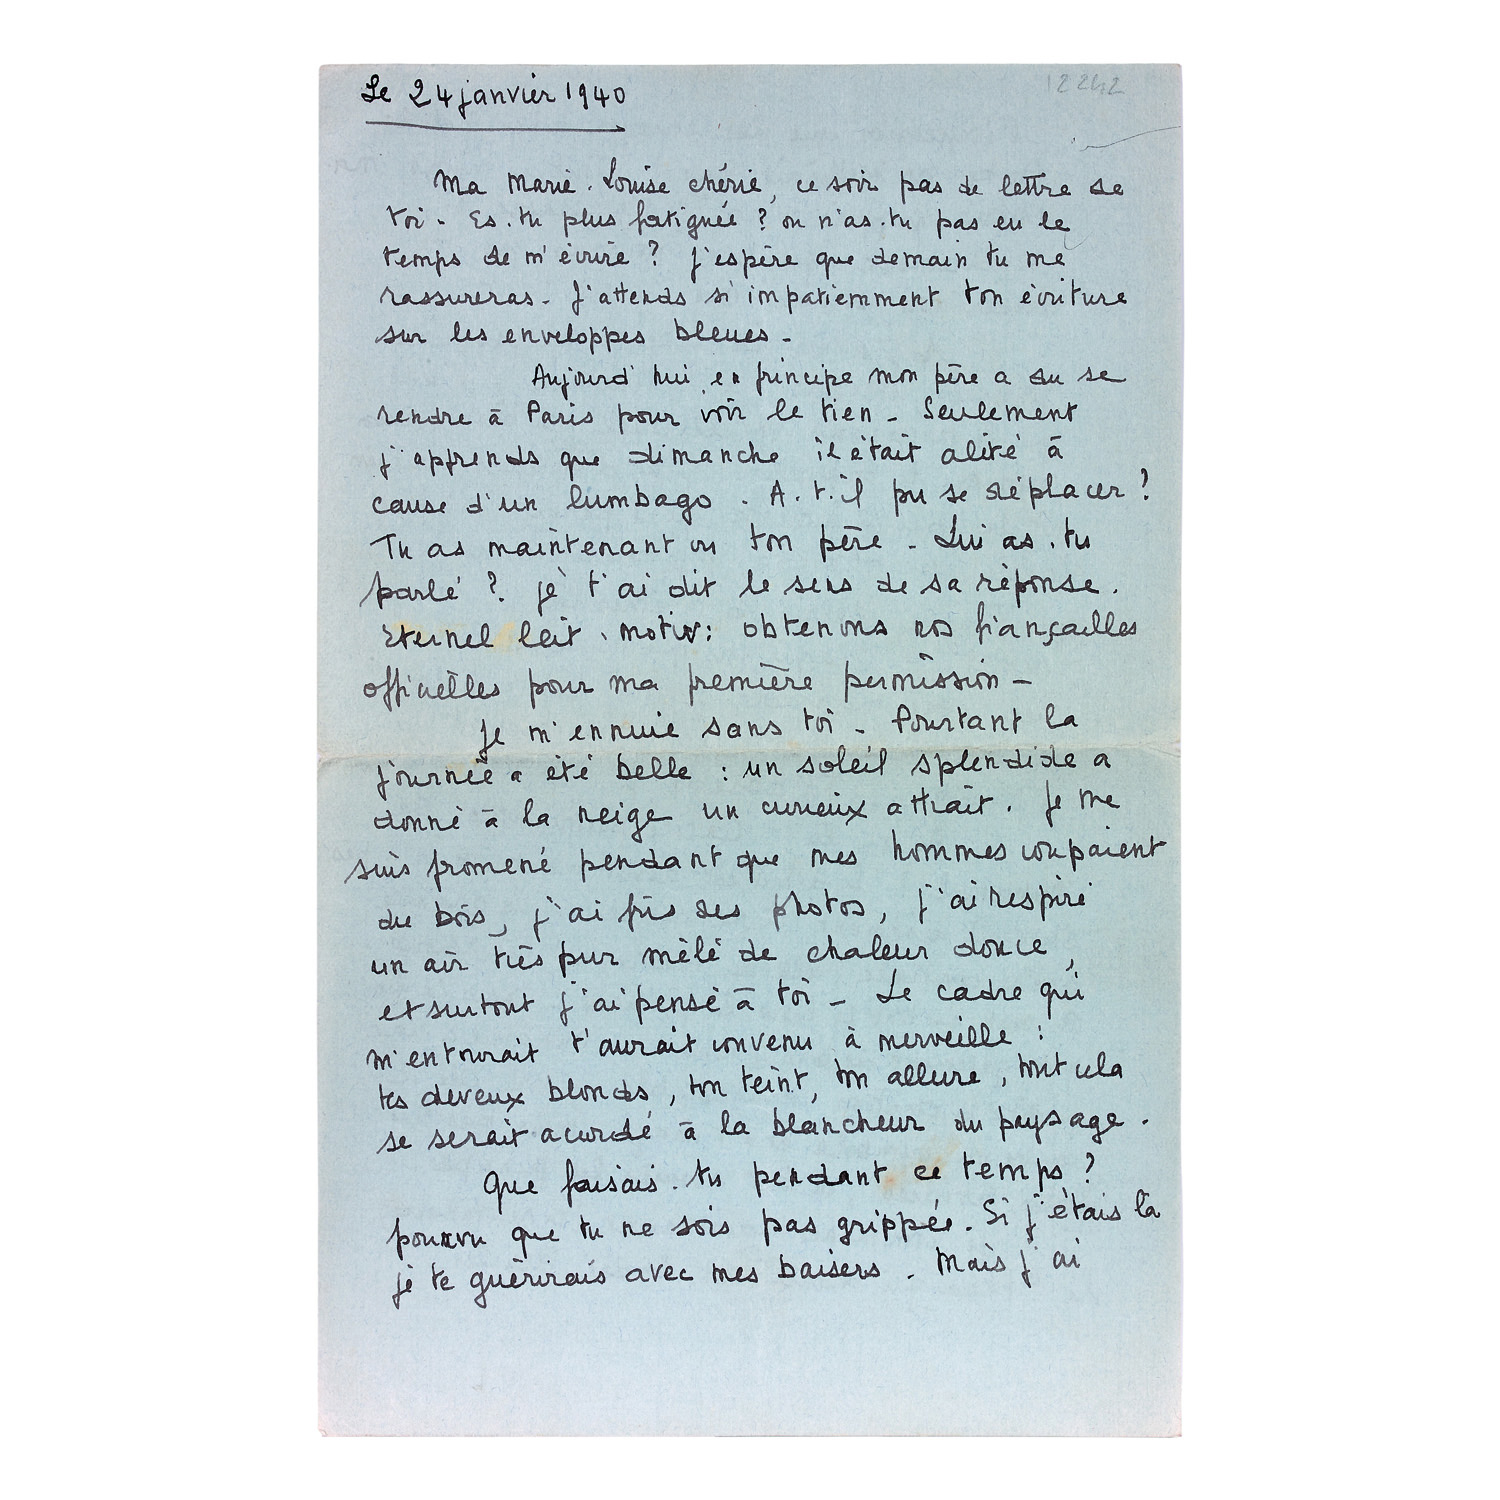 Le 24 janvier 1940
12242
Ma Marie-Louise chérie, ce soir pas de lettre de
toi - Es-tu plus fatiguée ? ou n'as-tu pas eu le
temps de m'écrire ? J'espère que demain tu me
rassureras - J'attends si impatiemment ton écriture
sur les enveloppes bleues -
Aujourd'hui en principe mon père a du se
rendre à Paris pour voir le tien - Seulement
j'apprends que dimanche il était alité à
cause d'un lumbago . A-t-il pu se déplacer ?
Tu as maintenant vu ton père - Lui as-tu
parlé ? je t'ai dit le sens de sa réponse .
Eternel leit-motiv : obtenons nos fiançailles
officielles pour ma première permission -
Je m'ennuie sans toi - Pourtant la
journée a été belle : un soleil splendide a
donné à la neige un curieux attrait . Je me
suis promené pendant que mes hommes coupaient
du bois, j'ai pris des photos, j'ai respiré
un air très pur mêlé de chaleur douce,
et surtout j'ai pensé à toi - Le cadre qui
m'entourait t'aurait convenu à merveille :
tes cheveux blonds, ton teint, ton allure, tout cela
se serait accordé à la blancheur du paysage .
Que faisais-tu pendant ce temps ?
pourvu que tu ne sois pas grippée . Si j'étais là
je te guérirais avec mes baisers . Mais j'ai